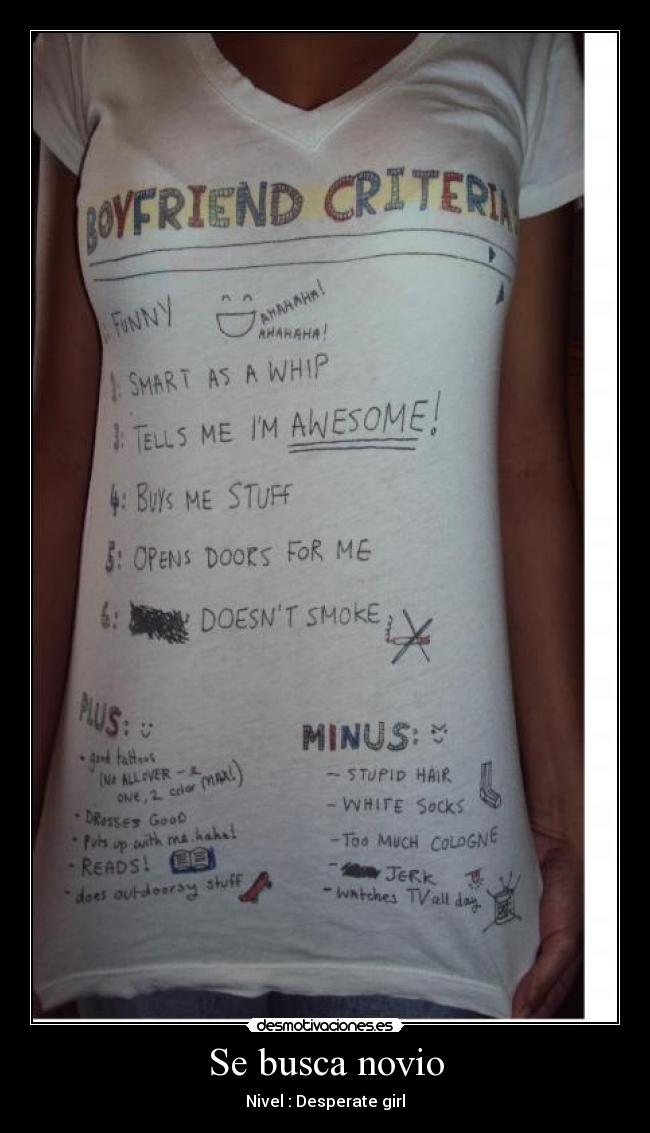 BOYFRIEND CRITERIA
1: FUNNY
AHAHAHA!
AHAHAHA!
2: SMART AS A WHIP
3: TELLS ME I'M AWESOME!
4: BUYS ME STUFF
5: OPENS DOORS FOR ME
6: DOESN'T SMOKE
PLUS:
• good tattoos
(NO ALLOVER -
ONE, 2 color MAX!)
• DRESSES GOOD
• Puts up with me. haha!
- READS!
- does outdoorsy stuff
MINUS:
- STUPID HAIR
- WHITE SOCKS
- TOO MUCH COLOGNE
- JERK
- watches TV all day
desmotivaciones.es
Se busca novio
Nivel : Desperate girl